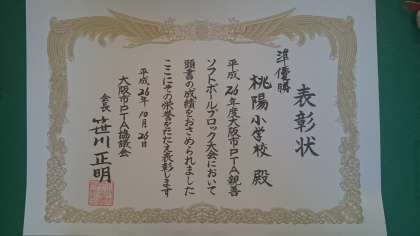 表彰状
準優勝
桃陽小学校 殿
平成26年度大阪市PTA親善
ソフトボールブロック大会において
頭書の成績をおさめられました
ここにその栄誉をたたえ表彰します
平成26年10月26日
大阪市PTA協議会
会長 笹川正明